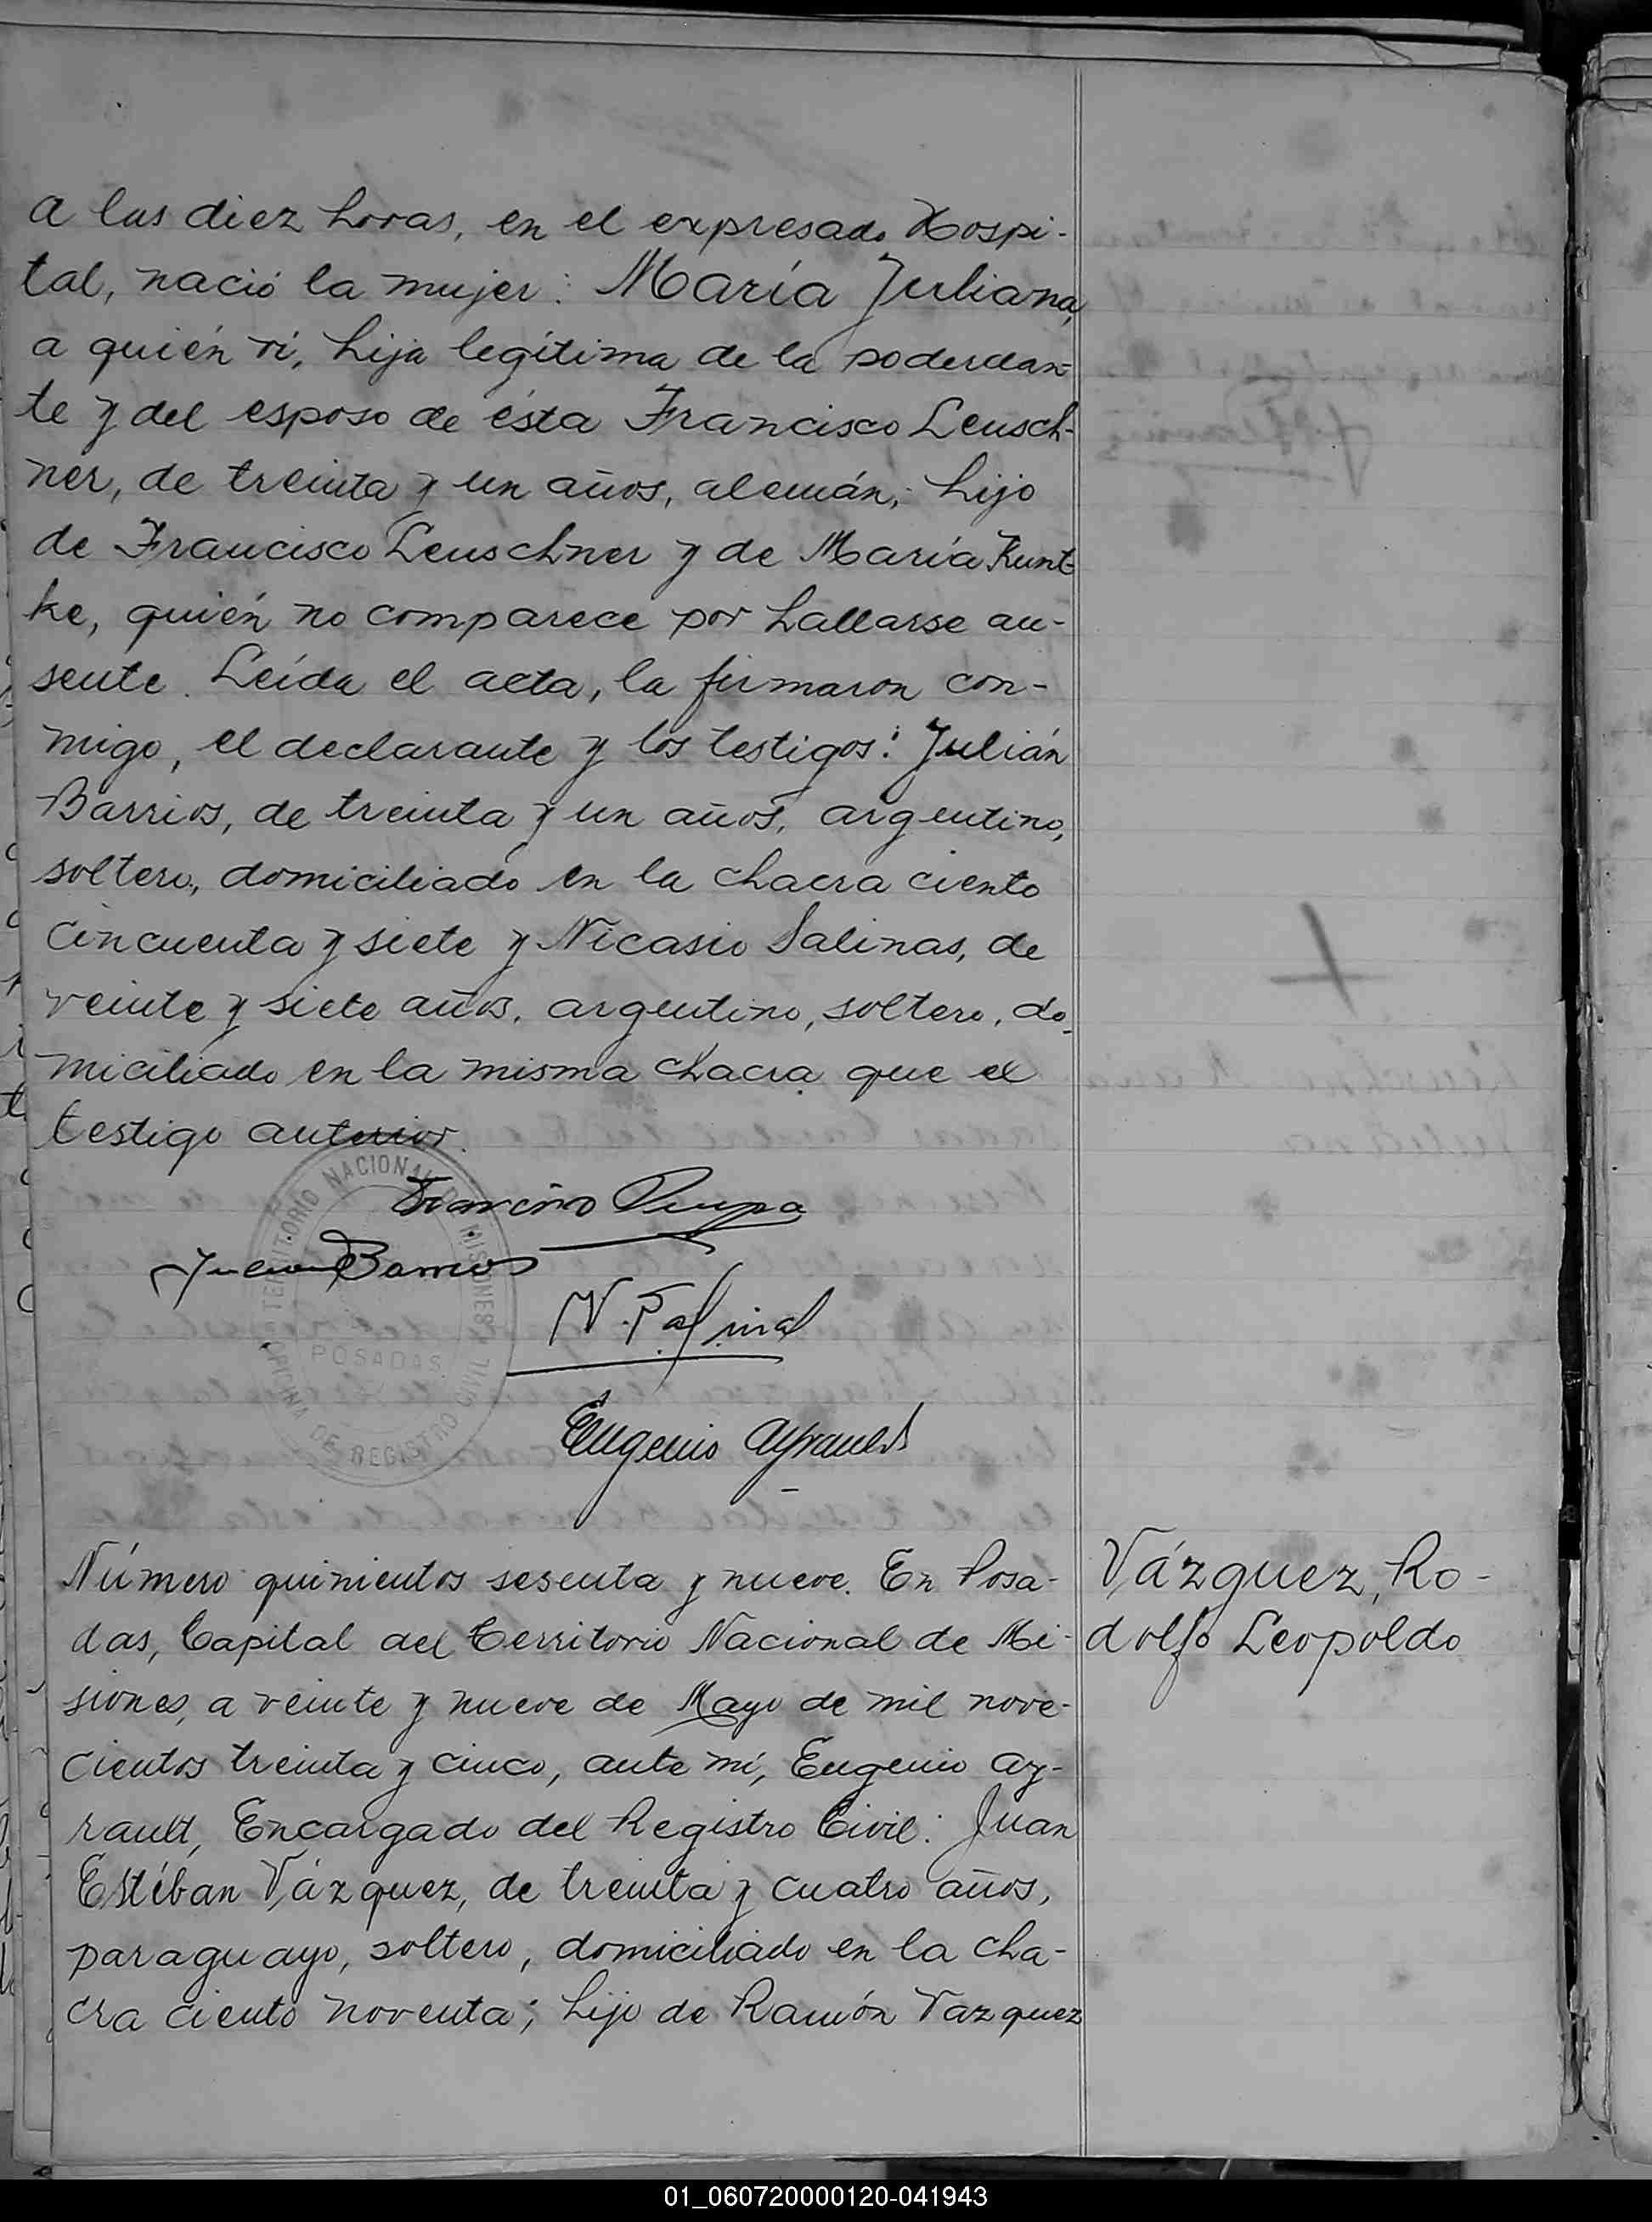 a las diez horas, en el expresado Hospi-
tal, nació la mujer: María Juliana,
a quién ví, hija legítima de la poderdan-
te y del esposo de ésta Francisco Leusch-
ner, de treinta y un años, alemán, hijo
de Francisco Leuschner y de María Kunt-
ke, quién no comparece por hallarse au-
sente. Leída el acta, la firmaron con-
migo, el declarante y los testigos: Julián
Barrios, de treinta y un años, argentino,
soltero, domiciliado en la chacra ciento
cincuenta y siete y Nicasio Salinas, de
veinte y siete años, argentino, soltero, do-
miciliado en la misma chacra que el
testigo anterior.
TERRITORIO NACIONAL DE MISIONES
POSADAS
OFICINA DE REGISTRO CIVIL
Francisco
Julian Barrios
N. Salinas
Eugenio Ayrault
Número quinientos sesenta y nueve. En Posa-
das, Capital del Territorio Nacional de Mi-
siones, a veinte y nueve de Mayo de mil nove-
cientos treinta y cinco, ante mí, Eugenio Ay-
rault, Encargado del Registro Civil: Juan
Estéban Vázquez, de treinta y cuatro años,
paraguayo, soltero, domiciliado en la cha-
cra ciento noventa; hijo de Ramón Vazquez
Vázquez, Ro-
dolfo Leopoldo
01_060720000120-041943